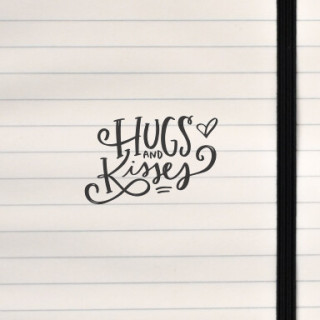 HUGS
AND
Kisses